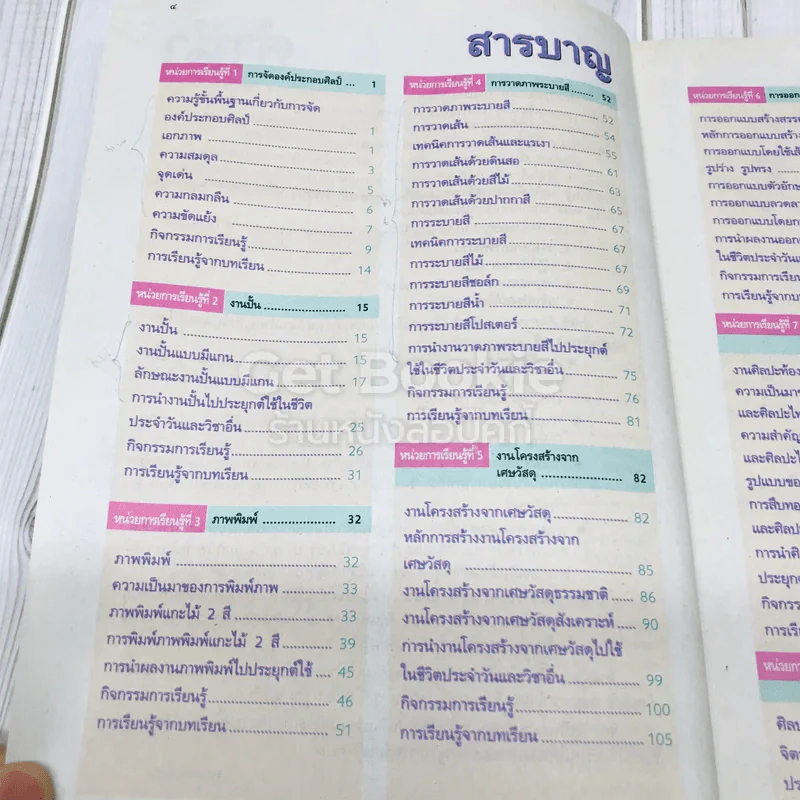 ๔
สารบาญ
หน่วยการเรียนรู้ที่ 1 การจัดองค์ประกอบศิลป์ ... 1
ความรู้ขั้นพื้นฐานเกี่ยวกับการจัด
องค์ประกอบศิลป์ 1
เอกภาพ 1
ความสมดุล 3
จุดเด่น 5
ความกลมกลืน 6
ความขัดแย้ง 7
กิจกรรมการเรียนรู้ 9
การเรียนรู้จากบทเรียน 14
หน่วยการเรียนรู้ที่ 2 งานปั้น 15
งานปั้น 15
งานปั้นแบบมีแกน 15
ลักษณะงานปั้นแบบมีแกน 17
การนำงานปั้นไปประยุกต์ใช้ในชีวิต
ประจำวันและวิชาอื่น 25
กิจกรรมการเรียนรู้ 26
การเรียนรู้จากบทเรียน 31
หน่วยการเรียนรู้ที่ 3 ภาพพิมพ์ 32
ภาพพิมพ์ 32
ความเป็นมาของการพิมพ์ภาพ 33
ภาพพิมพ์แกะไม้ 2 สี 33
การพิมพ์ภาพพิมพ์แกะไม้ 2 สี 39
การนำผลงานภาพพิมพ์ไปประยุกต์ใช้ 45
กิจกรรมการเรียนรู้ 46
การเรียนรู้จากบทเรียน 51
หน่วยการเรียนรู้ที่ 4 การวาดภาพระบายสี 52
การวาดภาพระบายสี 52
การวาดเส้น 54
เทคนิคการวาดเส้นและแรเงา 55
การวาดเส้นด้วยดินสอ 61
การวาดเส้นด้วยสีไม้ 63
การวาดเส้นด้วยปากกาสี 65
การระบายสี 67
เทคนิคการระบายสี 67
การระบายสีไม้ 67
การระบายสีชอล์ก 69
การระบายสีน้ำ 71
การระบายสีโปสเตอร์ 72
การนำงานวาดภาพระบายสีไปประยุกต์
ใช้ในชีวิตประจำวันและวิชาอื่น 75
กิจกรรมการเรียนรู้ 76
การเรียนรู้จากบทเรียน 81
หน่วยการเรียนรู้ที่ 5 งานโครงสร้างจาก
เศษวัสดุ 82
งานโครงสร้างจากเศษวัสดุ 82
หลักการสร้างงานโครงสร้างจาก
เศษวัสดุ 85
งานโครงสร้างจากเศษวัสดุธรรมชาติ 86
งานโครงสร้างจากเศษวัสดุสังเคราะห์ 90
การนำงานโครงสร้างจากเศษวัสดุไปใช้
ในชีวิตประจำวันและวิชาอื่น 99
กิจกรรมการเรียนรู้ 100
การเรียนรู้จากบทเรียน 105
หน่วยการเรียนรู้ที่ 6 การออก
การออกแบบสร้างสรร
หลักการออกแบบสร้าง
การออกแบบโดยใช้เส้
รูปร่าง รูปทรง
การออกแบบตัวอักษ
การออกแบบลวดลา
การออกแบบโดยก
การนำผลงานออก
ในชีวิตประจำวันแ
กิจกรรมการเรียน
การเรียนรู้จากบ
หน่วยการเรียนรู้ที่ 7
งานศิลปะท้อง
ความเป็นมาข
และศิลปะไท
ความสำคัญ
และศิลปะไ
รูปแบบขอ
การสืบทอ
และศิลป
การนำศิ
ประยุก
กิจกร
การเรี
หน่วยการ
ศิลป
จิต
ปร
Get Bookie
ร้านหนังสือบุ๊คกี้